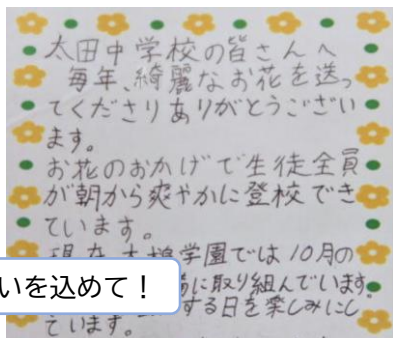 太田中学校の皆さんへ
毎年、綺麗なお花を送っ
てくださりありがとうござい
ます。
お花のおかげで生徒全員
が朝から爽やかに登校でき
ています。
学園では10月の
いを込めて！
に取り組んでいます。
する日を楽しみにし
ています。